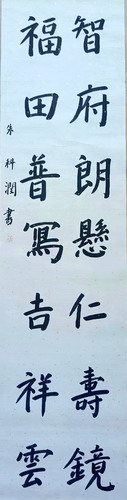 智府朗懸仁壽鏡
福田普寫吉祥雲
朱科潤書